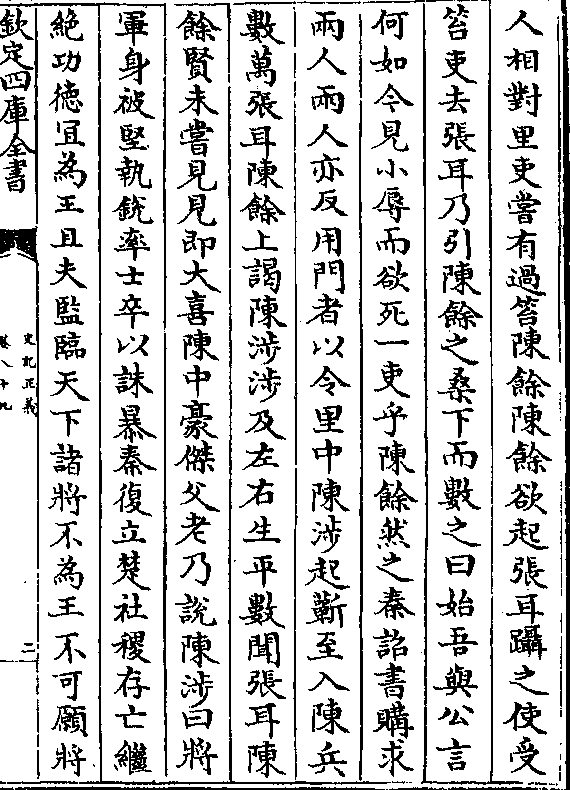 人相對里吏嘗有過笞陳餘陳餘欲起張耳躡之使受
笞吏去張耳乃引陳餘之桑下而數之曰始吾與公言
何如今見小辱而欲死一吏乎陳餘然之秦詔書購求
兩人兩人亦反用門者以令里中陳涉起蘄至入陳兵
數萬張耳陳餘上謁陳涉涉及左右生平數聞張耳陳
餘賢未嘗見見即大喜陳中豪傑父老乃說陳涉曰將
軍身被堅執銳率士卒以誅暴秦復立楚社稷存亡繼
絶功徳宜為王且夫監臨天下諸將不為王不可願將
欽定四庫全書
史記正義
卷八十九
二